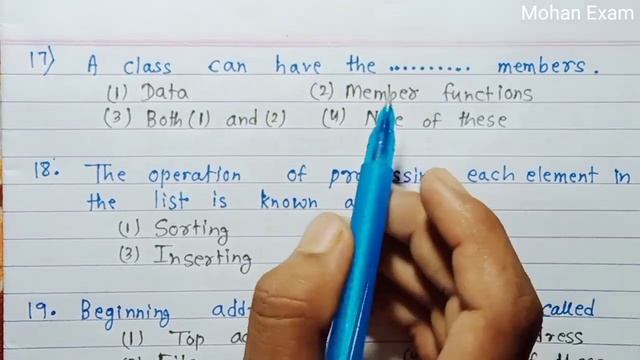 Mohan Exam
17) A class can have the .......... members.
(1) Data (2) Member functions
(3) Both (1) and (2) (4) of these
18. The operation of each element in
the list is known
(1) Sorting
(3) Inserting
19. Beginning called
(1) Top